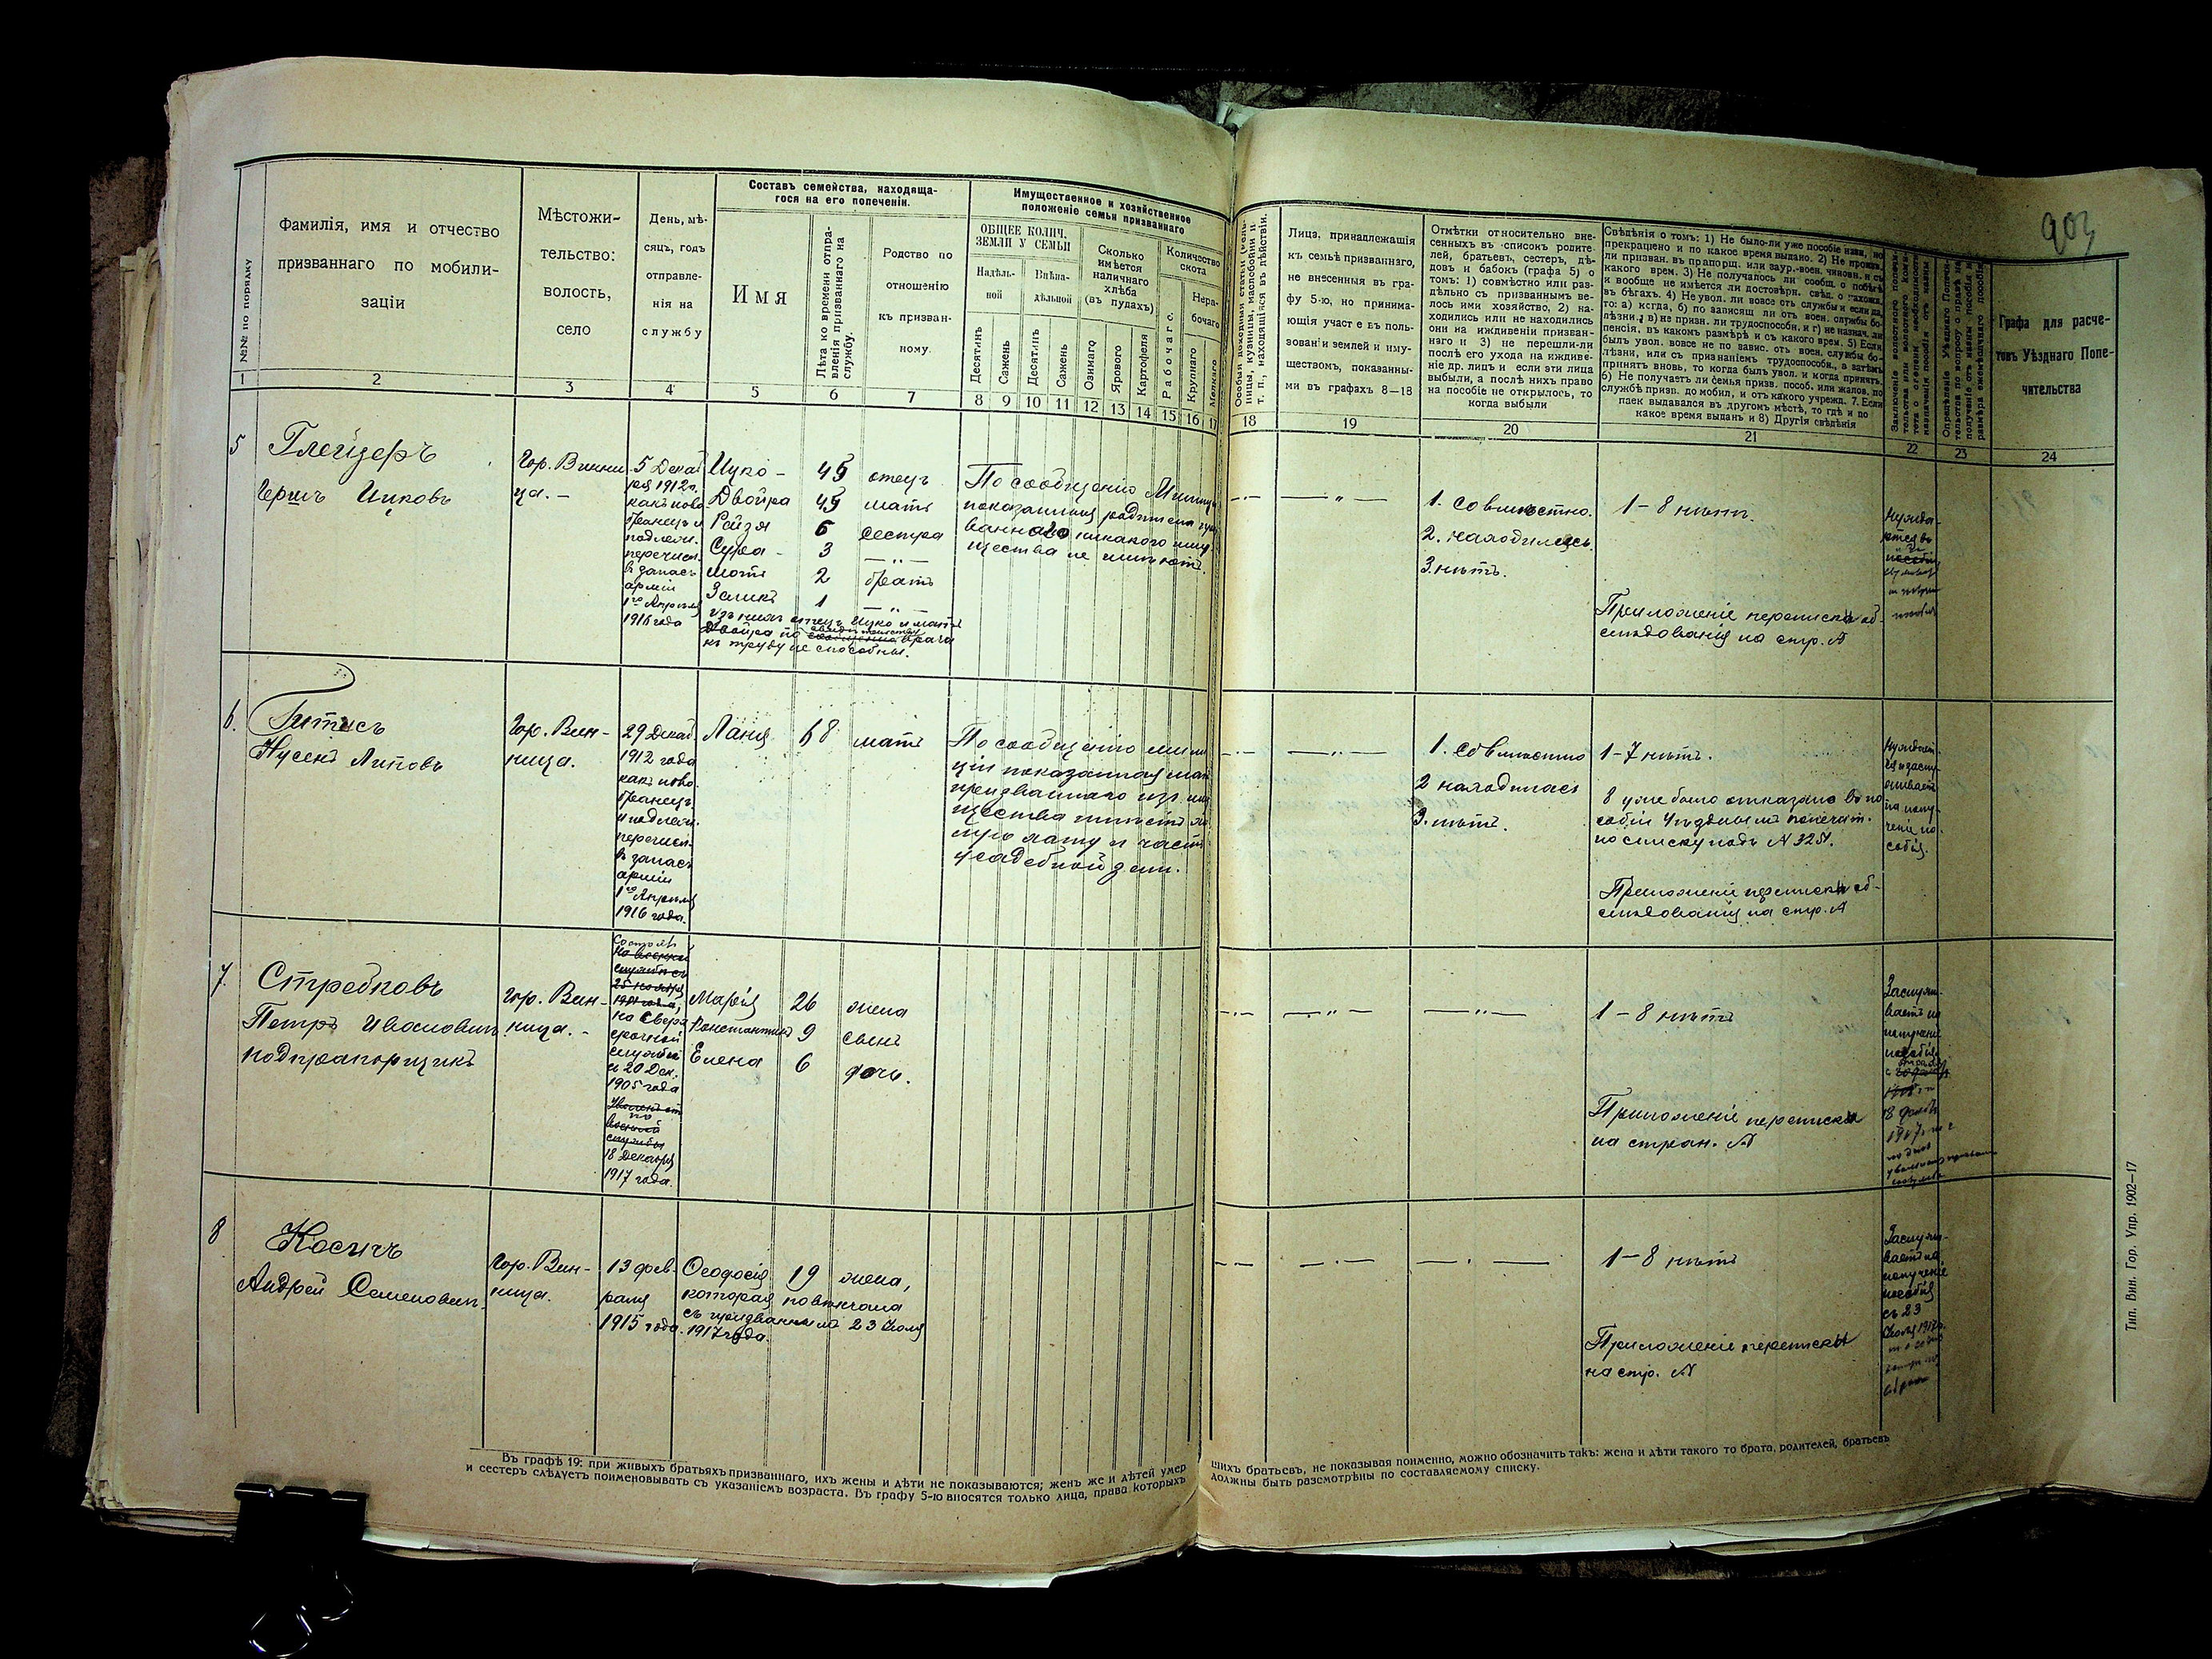 903
№№ по порядку
Фамилія, имя и отчество
призваннаго по мобили-
заціи
Мѣстожи-
тельство:
волость,
село
День, мѣ-
сяцъ, годъ
отправле-
нія на
службу
Составъ семейства, находяща-
гося на его попеченіи.
Имя
Лѣта ко времени отпра-
вленія призваннаго на
службу.
Родство по
отношенію
къ призван-
ному.
Имущественное и хозяйственное
положеніе семьи призваннаго
ОБЩЕЕ КОЛИЧ.
ЗЕМЛИ У СЕМЬИ
Надѣль-
ной
Внѣна-
дѣльной
Десятинъ
Сажень
Десятинъ
Сажень
Сколько
имѣется
наличнаго
хлѣба
(въ пудахъ)
Озимаго
Ярового
Картофеля
Количество
скота
Рабочаго с.
Нера-
бочаго
Крупнаго
Мелкаго
т. п., находящіяся въ дѣйствіи.
Лица, принадлежащія
къ семьѣ призваннаго,
не внесенныя въ гра-
фу 5-ю, но принима-
ющія участіе въ поль-
зованіи землей и иму-
ществомъ, показанны-
ми въ графахъ 8—18
Отмѣтки относительно вне-
сенныхъ въ списокъ родите-
лей, братьевъ, сестеръ, дѣ-
довъ и бабокъ (графа 5) о
томъ: 1) совмѣстно или раз-
дѣльно съ призваннымъ ве-
лось ими хозяйство, 2) на-
ходились или не находились
они на иждивеніи призван-
наго и 3) не перешли-ли
послѣ его ухода на иждиве-
ніе др. лицъ и если эти лица
выбыли, а послѣ нихъ право
на пособіе не открылось, то
когда выбыли
Свѣдѣнія о томъ: 1) Не было-ли уже пособіе назн., но
прекращено и по какое время выдано. 2) Не произв.
ли призван. въ прапорщ. или заур.-воен. чиновн. и съ
какого врем. 3) Не получалось ли сообщ. о побѣгѣ
и вообще не имѣется ли достовѣрн. свѣд. о нахожд.
въ бѣгахъ. 4) Не увол. ли вовсе отъ службы и если да,
то: а) когда, б) по зависящ ли отъ воен. службы бо-
лѣзни, в) на призн. ли трудоспособн. и г) не назнач. ли
пенсія, въ какомъ размѣрѣ и съ какого врем. 5) Если
былъ увол. вовсе не по завис. отъ воен. службы бо-
лѣзни, или съ признаніемъ трудоспособн., а затѣмъ
принятъ вновь, то когда былъ увол. и когда принятъ.
6) Не получаетъ ли семья призв. пособ. или жалов. по
службѣ призв. до мобил, и отъ какого учрежд. 7. Если
паек выдавался въ другомъ мѣстѣ, то гдѣ и по
какое время выданъ и 8) Другія свѣдѣнія
Графа для расче-
товъ Уѣзднаго Попе-
чительства
1 2 3 4 5 6 7 8 9 10 11 12 13 14 15 16 17 18 19 20 21 22 23 24
5
Глейзеръ
Гершъ Ицковъ
Гор. Винни
ца.-
5 Декаб
ря 1912 г.
какъ ново
бранецъ и
подлеж.
перечисл.
въ запасъ
арміи
1го Апрѣля
1916 года
Ицко - 45 отецъ
Двойра 45 мать
Рейзя 6 сестра
Сура - 3 —"—
Мотя 2 братъ
Зеликъ 1 —"—
изъ нихъ отецъ Ицко и мать
Двойра по врача
къ труду не способны.
По сообщенію Милиціи
показанныя родители при
званнаго никакого иму
щества не имѣютъ.
—·— —"—
1. Совмѣстно.
2. находились.
3. нѣтъ.
1-8 нѣтъ.
Приложеніе переписка об-
слѣдованія на стр. №
Нужда-
ется въ
6.
Гитисъ
Нусенъ Липовъ
Гор. Вин-
ница.
29 Декаб.
1912 года
какъ ново
бранецъ
и подлеж.
перечисл.
въ запасъ
арміи
1го Апрѣля
1916 года.
Ланя 68 мать
По сообщенію мили
ціи показанная мать
призваннаго изъ иму
щества имѣетъ
хату и часть
усадебной зем.
—·— —"—
1. Совмѣстно
2 находилась
3. нѣтъ.
1-7 нѣтъ.
8 уже было отказано въ по
собіи Уѣзднымъ попечит.
по списку подъ №
Приложеніе переписка об-
слѣдованія на стр. №
Нуждает.
ся и заслу
живаетъ
на полу
ченіе по
собія.
7.
Стребковъ
Петръ Ивановичъ
подпрапорщикъ
гор. Вин-
ница. -
Состоялъ
на военной
службѣ съ
25 ноября
1901 года,
на сверх
срочной
службѣ
съ 20 Дек.
1905 года
Уволенъ от
военной
службы
18 Декабря
1917 года.
Марія 26 жена
Константинъ 9 сынъ
Елена 6 дочь.
—·— —"— —"—
1-8 нѣтъ
Приложеніе переписка
на стран. №
Заслужи-
ваетъ на
полученіе
пособія
8
Косичъ
Андрей Семеновичъ.
Гор. Вин-
ница.
13 фев-
раля
1915 года.
Феодосія 19 жена,
которая повѣнчана
съ призваннымъ 23 Іюля
1917 года.
—·— —·— —·—
1-8 нѣтъ
Приложеніе переписка
на стр. №
Заслужи-
ваетъ на
полученіе
пособія
съ 23
Іюля 1917 г.
Въ графѣ 19: при живыхъ братьяхъ призваннаго, ихъ жены и дѣти не показываются; женъ же и дѣтей умер
шихъ братьевъ, не показывая поименно, можно обозначить такъ: жена и дѣти такого то брата, родителей, братьевъ
и сестеръ слѣдуетъ поименовывать съ указаніемъ возраста. Въ графу 5-ю вносятся только лица, права которыхъ
должны быть разсмотрѣны по составляемому списку.
Тип. Вин. Гор. Упр. 1902—17